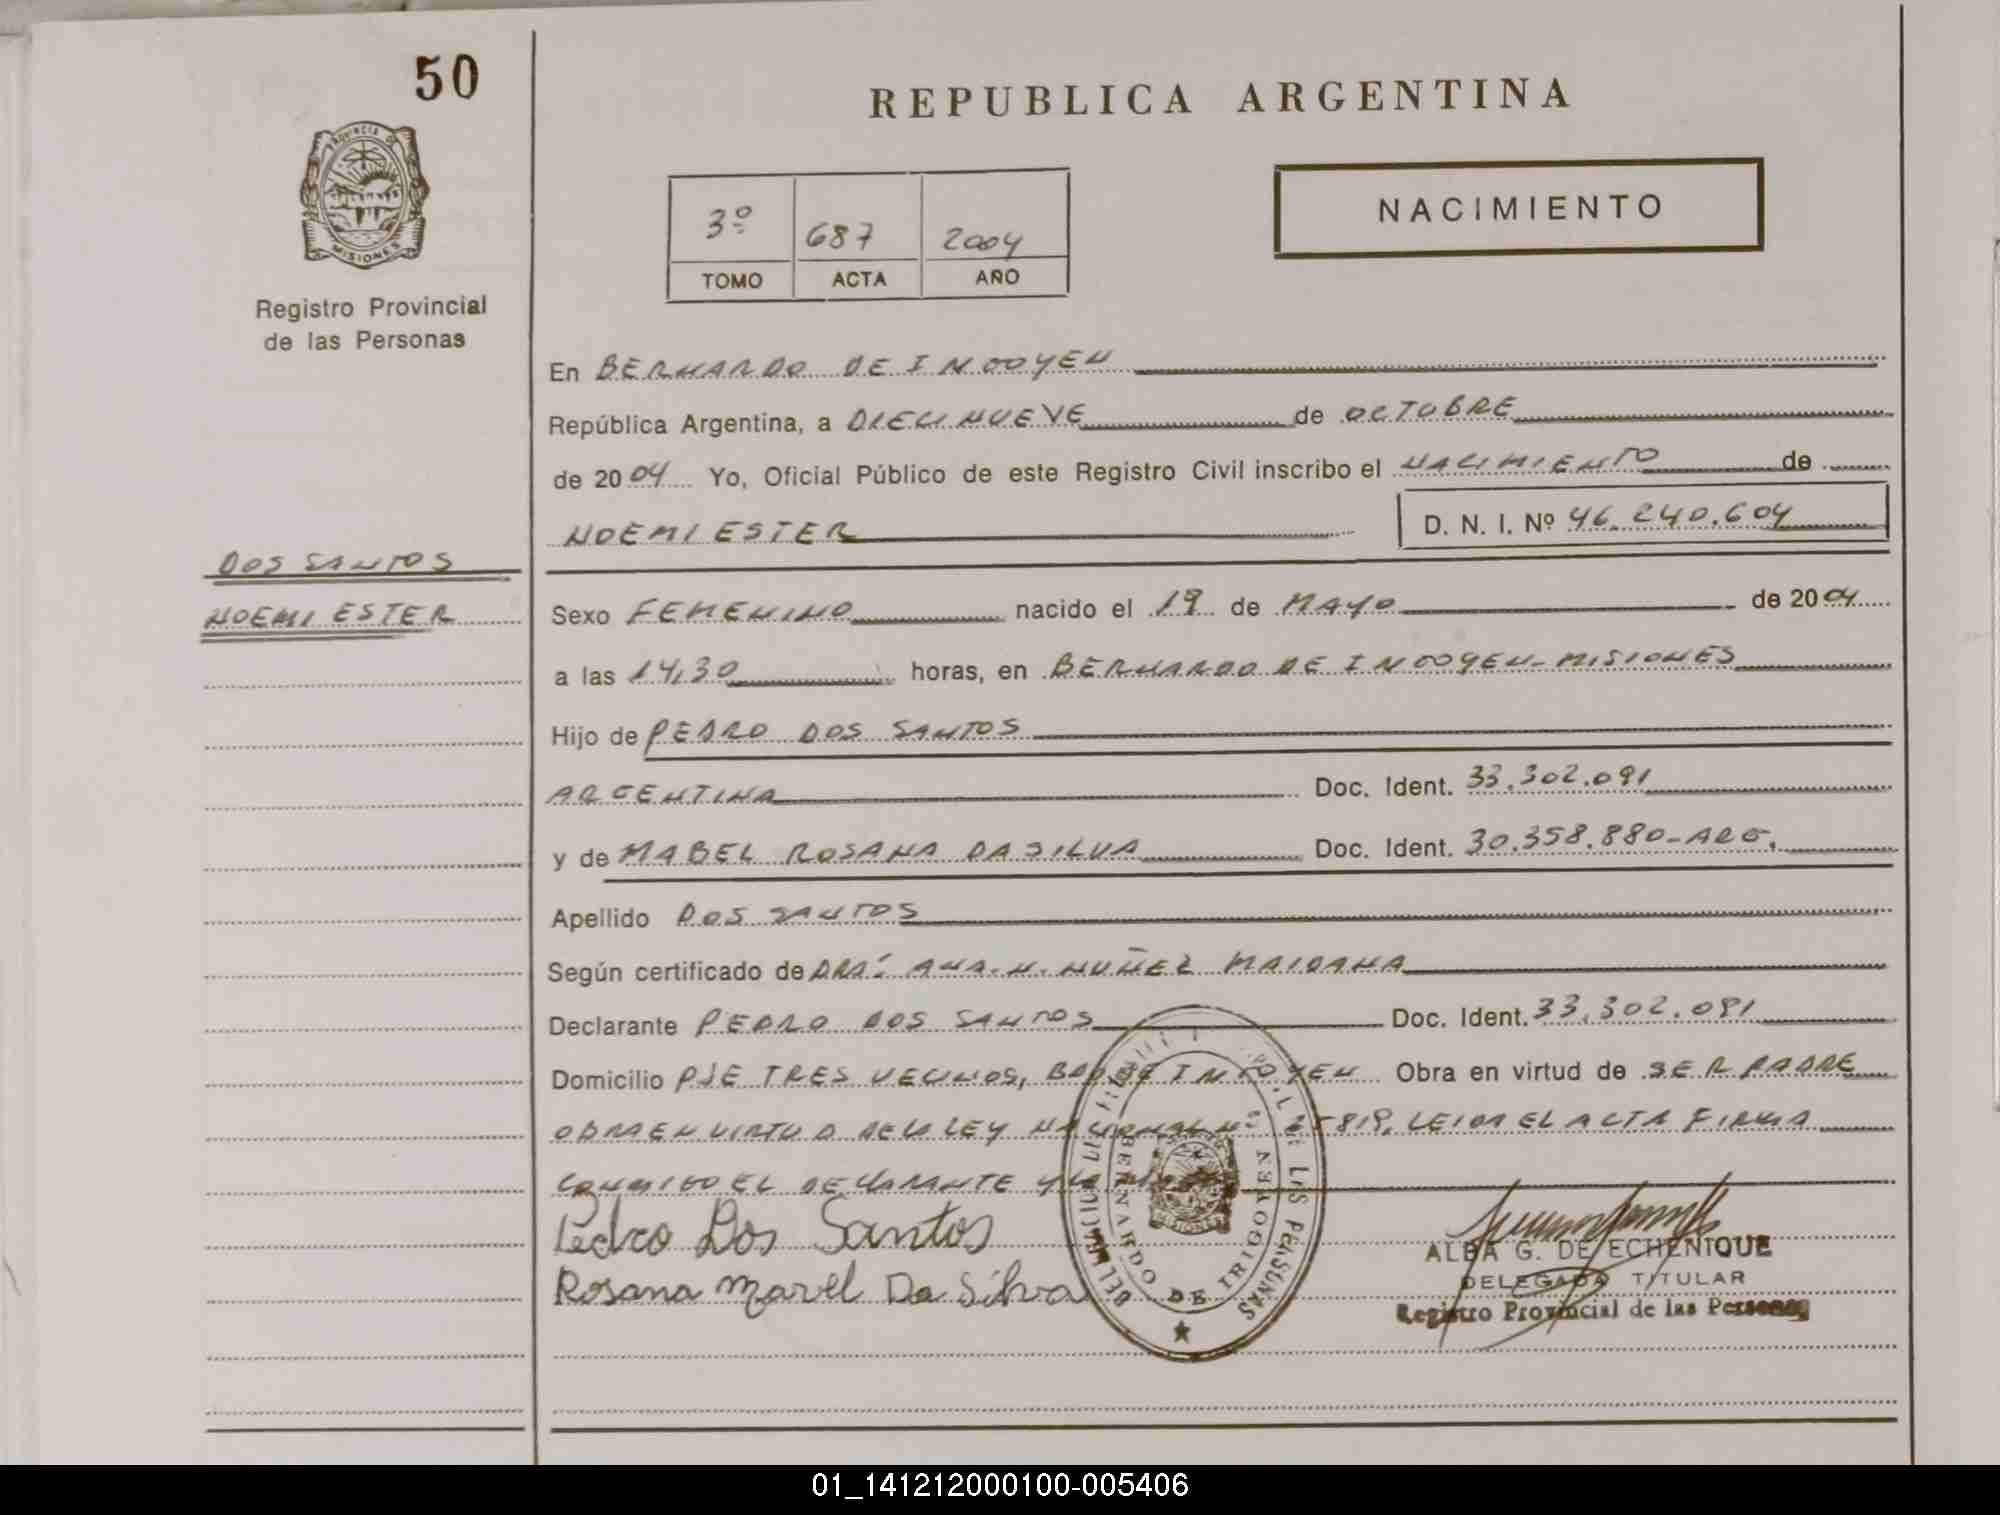 50
REPUBLICA ARGENTINA
PROVINCIA DE
MISIONES
3º 687 2004
TOMO ACTA AÑO
NACIMIENTO
Registro Provincial
de las Personas
En BERNARDO DE IRIGOYEN
República Argentina, a DIECINUEVE de OCTUBRE
de 2004 Yo, Oficial Público de este Registro Civil inscribo el NACIMIENTO de
NOEMI ESTER D. N. I. Nº 46.240.604
DOS SANTOS
NOEMI ESTER
Sexo FEMENINO nacido el 19 de MAYO de 2004
a las 14,30 horas, en BERNARDO DE IRIGOYEN-MISIONES
Hijo de PEDRO DOS SANTOS
ARGENTINA Doc. Ident. 33.302.091
y de MABEL ROSANA DA SILVA Doc. Ident. 30.358.880-ARG.
Apellido DOS SANTOS
Según certificado de DRA. ANA. N. NUÑEZ MAIDANA
Declarante PEDRO DOS SANTOS Doc. Ident. 33.302.091
Domicilio PJE TRES VECINOS, BDO DE IRIGOYEN Obra en virtud de SER PADRE
OBRA EN VIRTUD DE LA LEY NACIONAL Nº 25819, LEIDA EL ACTA FIRMA
CONMIGO EL DECLARANTE Y LA
Pedro Dos Santos
Rosana Mavel Da Silva
DELEGACION DEL REGISTRO PROVINCIAL DE LAS PERSONAS
BERNARDO DE IRIGOYEN
MISIONES
ALBA G. DE ECHENIQUE
DELEGADA TITULAR
Registro Provincial de las Personas
01_141212000100-005406